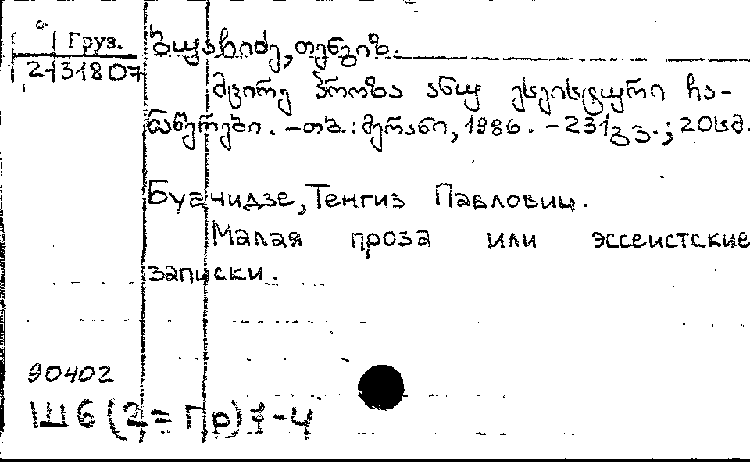 Груз.
2-31807
ბუაჩიძე, თენგიზ.
მცირე პროზა ანუ ესეისტური ჩა-
ნაწერები. – თბ.: მერანი, 1986. – 231გვ.; 20სმ.
Буачидзе, Тенгиз Павлович.
Малая проза или эссеистские
записки.
90402
Ш6(2=Гр)7-4